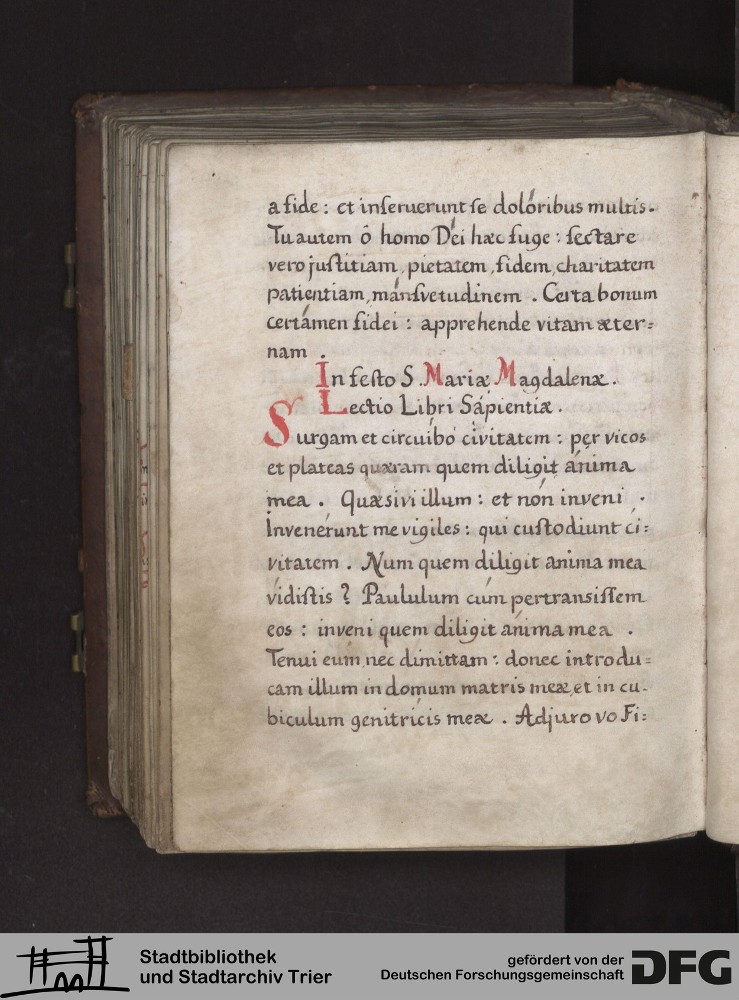 a fide : et inſeruerunt ſe dolóribus multis.
Tu autem ô homo Déi hæc fuge : ſectare
vero juſtitiam, pietatem, fidem, charitatem
patientiam, mánſvetudinem . Certa bonum
certámen fidei : apprehende vitam æter=
nam .
In feſto S. Mariæ Magdalenæ.
Lectio Libri Sápientiæ .
Surgam et circuíbo civitatem : per vicos
et plateas quæram quem diligit ánima
mea . Quæsivi illum : et nón inveni .
Invenérunt me vigiles : qui cuſtodiunt cí=
vitatem . Num quem diligit anima mea
vidiſtis ? Paululum cúm pertransiſſem
eos : inveni quem diligit ánima mea .
Tenui eum, nec dimittam : donec introdu=
cam illum in domum matris meæ, et in cu-
biculum genitrícis meæ . Adjuro vo Fi:
Stadtbibliothek
und Stadtarchiv Trier
gefördert von der
Deutschen Forschungsgemeinschaft
DFG